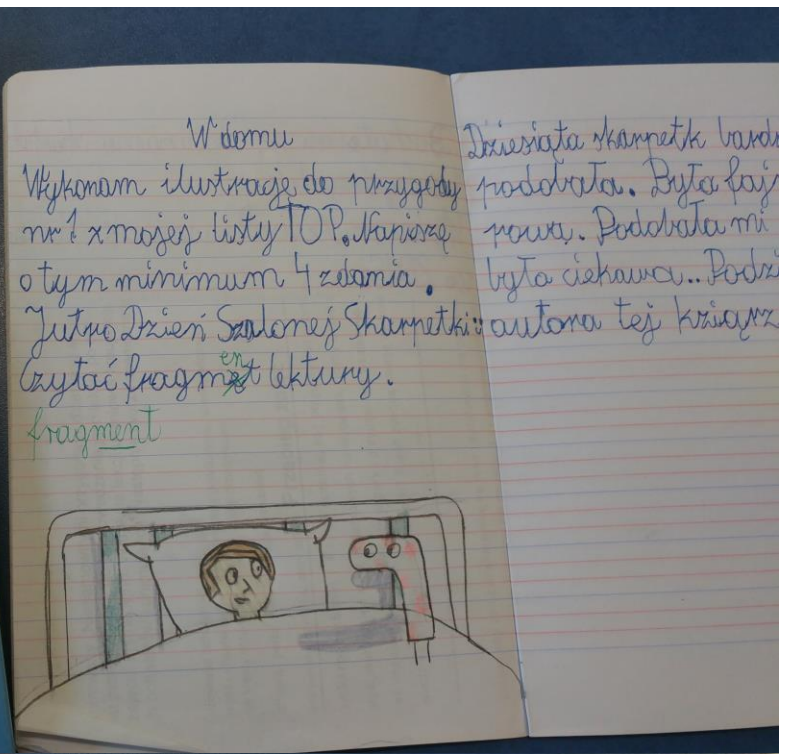 W domu
Wykonam ilustrację do przygody
nr 1 z mojej listy TOP. Napiszę
o tym minimum 4 zdania.
Jutro Dzień Szalonej Skarpetki
Czytać fragment lektury.
fragment
Dziesiąta skarpetk
podobała. Była
rową. Podobała mi
była ciekawa.. Podzi
autora tej książ